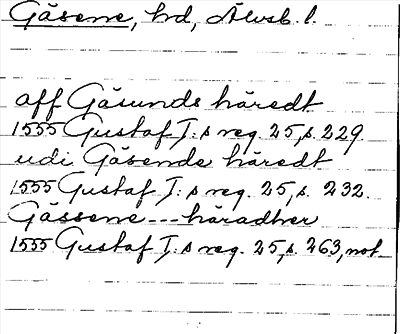 Gäsene, hd, Älvsb. l.
aff Gäsunds häredt
1555 Gustaf I:s reg. 25, s. 229
udi Gäsende häredt
1555 Gustaf I:s reg. 25, s. 232.
Gässene --- häradher
1555 Gustaf I:s reg. 25, s. 263, not